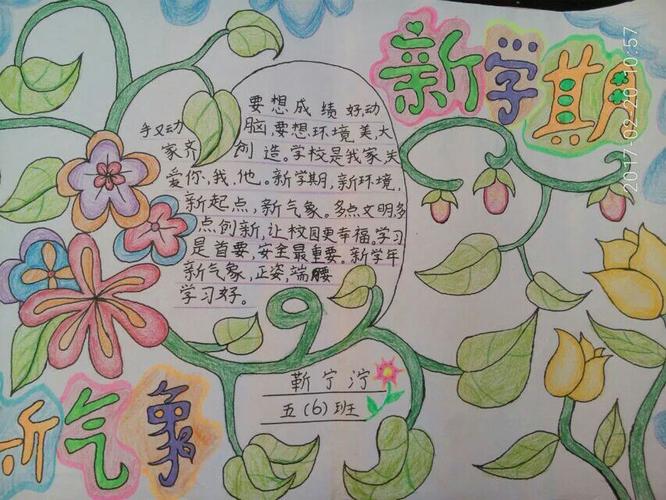 新学期
2017-02-20 10:57
要想成绩好动
手又动脑要想环境美大
家齐创造。学校是我家关
爱你,我,他。新学期,新环境,
新起点,新气象。多点文明多
点创新,让校园更幸福。学习
是首要,安全最重要。新学年
新气象,正姿,端腰
学习好。
靳宁泞
五(6)班
新气象